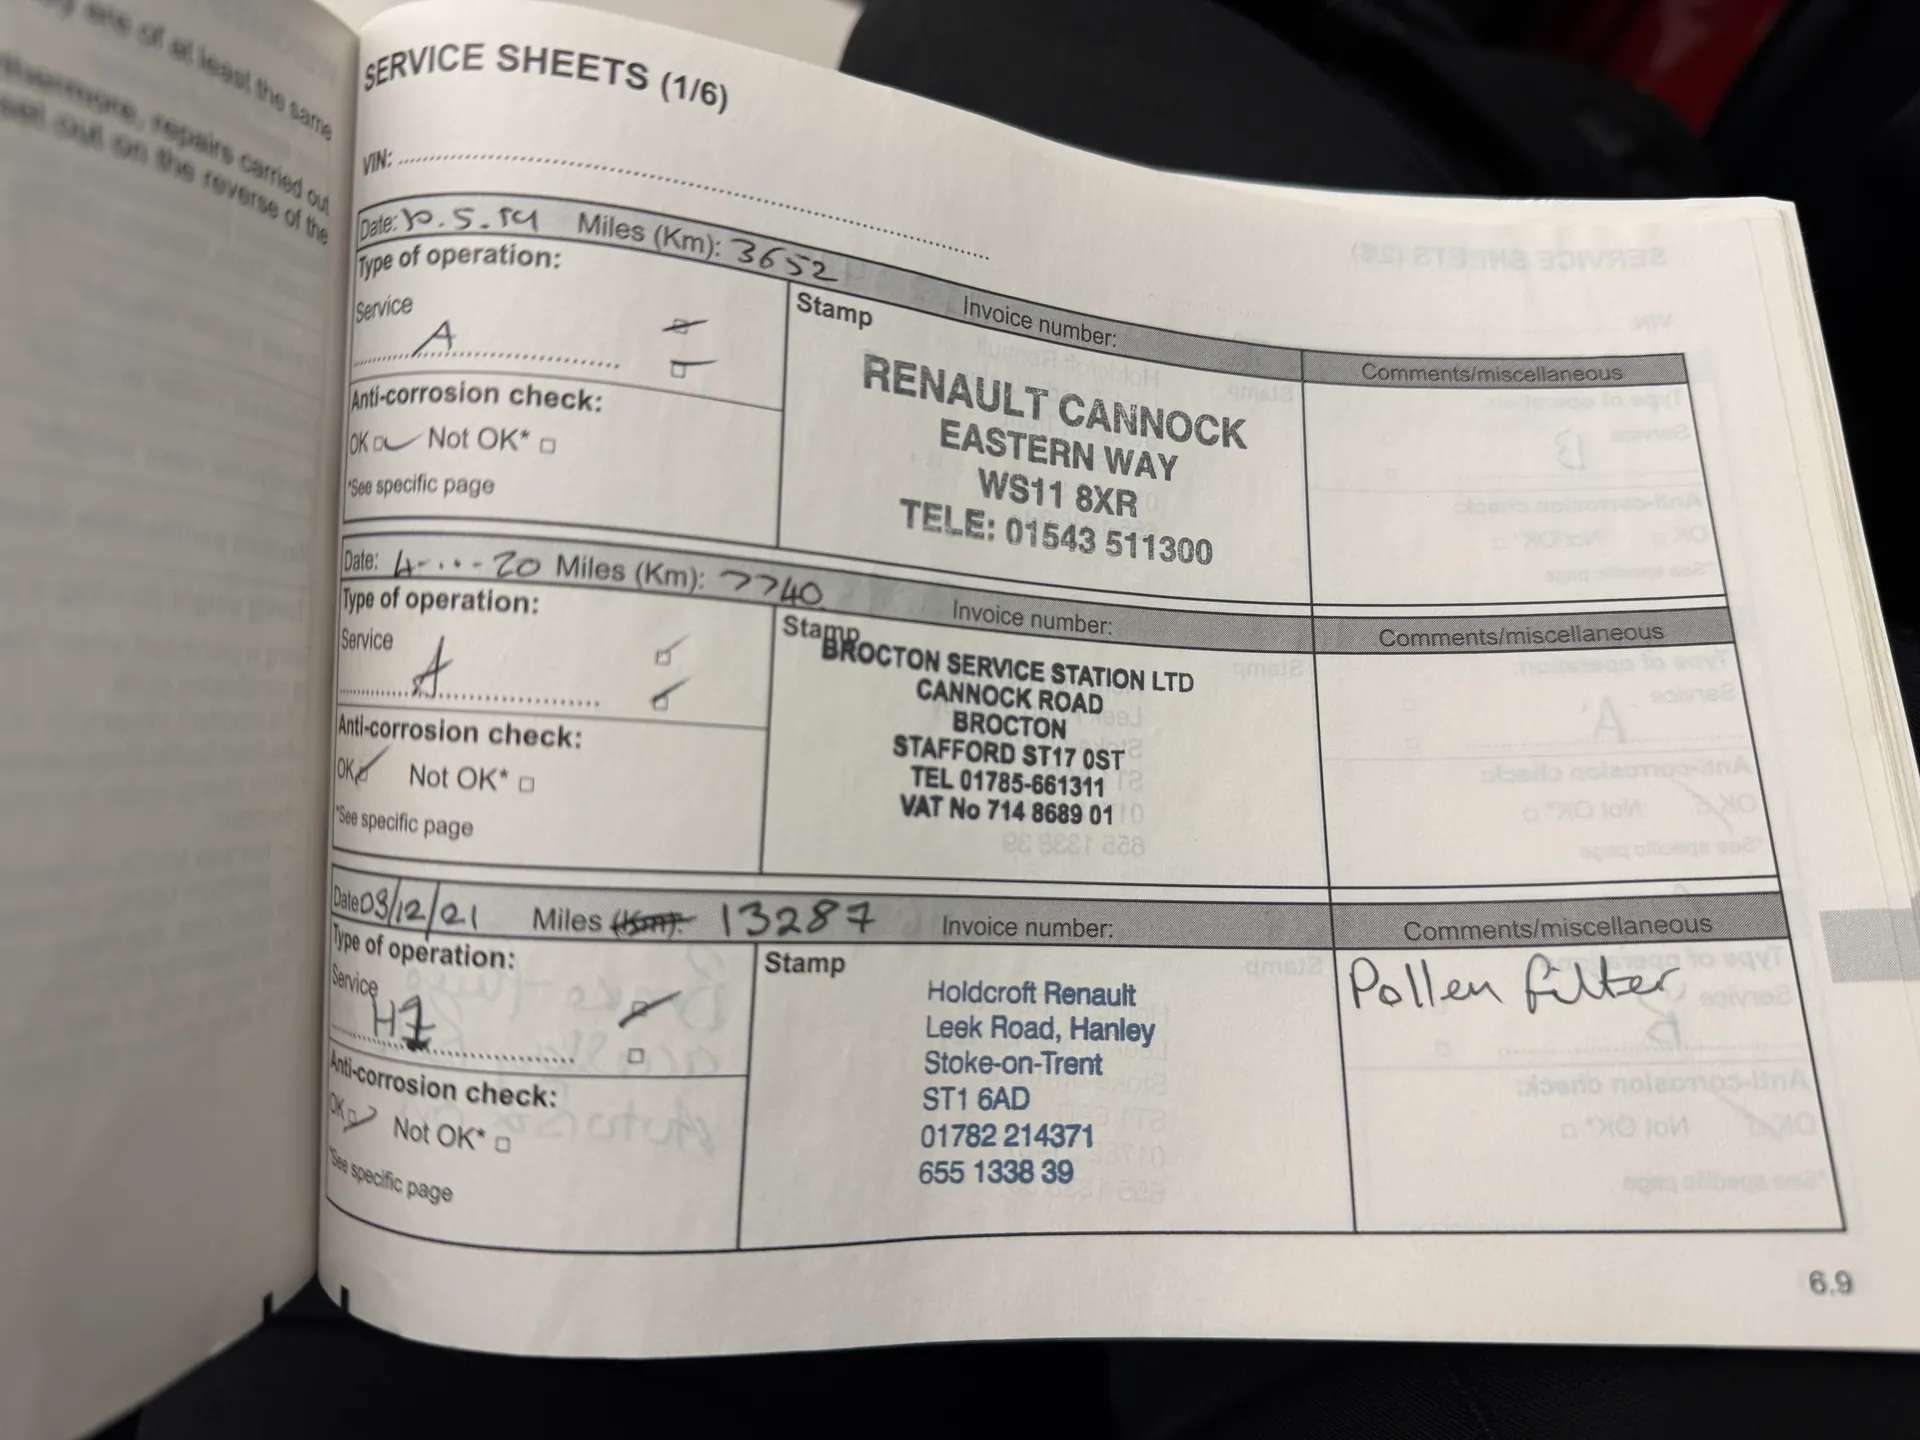 are of at least the same
repairs carried out
out on the reverse of the
SERVICE SHEETS (1/6)
VIN:
Date: 5.19 Miles (Km): 3652 Invoice number:
Type of operation:
Service
A
Stamp
Comments/miscellaneous
RENAULT CANNOCK
EASTERN WAY
WS11 8XR
TELE: 01543 511300
Anti-corrosion check:
OK Not OK*
*See specific page
Date: 4-...-20 Miles (Km): 7740 Invoice number:
Type of operation:
Service
A
Stamp
Comments/miscellaneous
BROCTON SERVICE STATION LTD
CANNOCK ROAD
BROCTON
STAFFORD ST17 0ST
TEL 01785-661311
VAT No 714 8689 01
Anti-corrosion check:
OK Not OK*
*See specific page
Date 03/12/21 Miles (Km): 13287 Invoice number:
Type of operation:
Service
Stamp
Comments/miscellaneous
Pollen filter
Holdcroft Renault
Leek Road, Hanley
Stoke-on-Trent
ST1 6AD
01782 214371
655 1338 39
Anti-corrosion check:
OK Not OK*
*See specific page
6.9